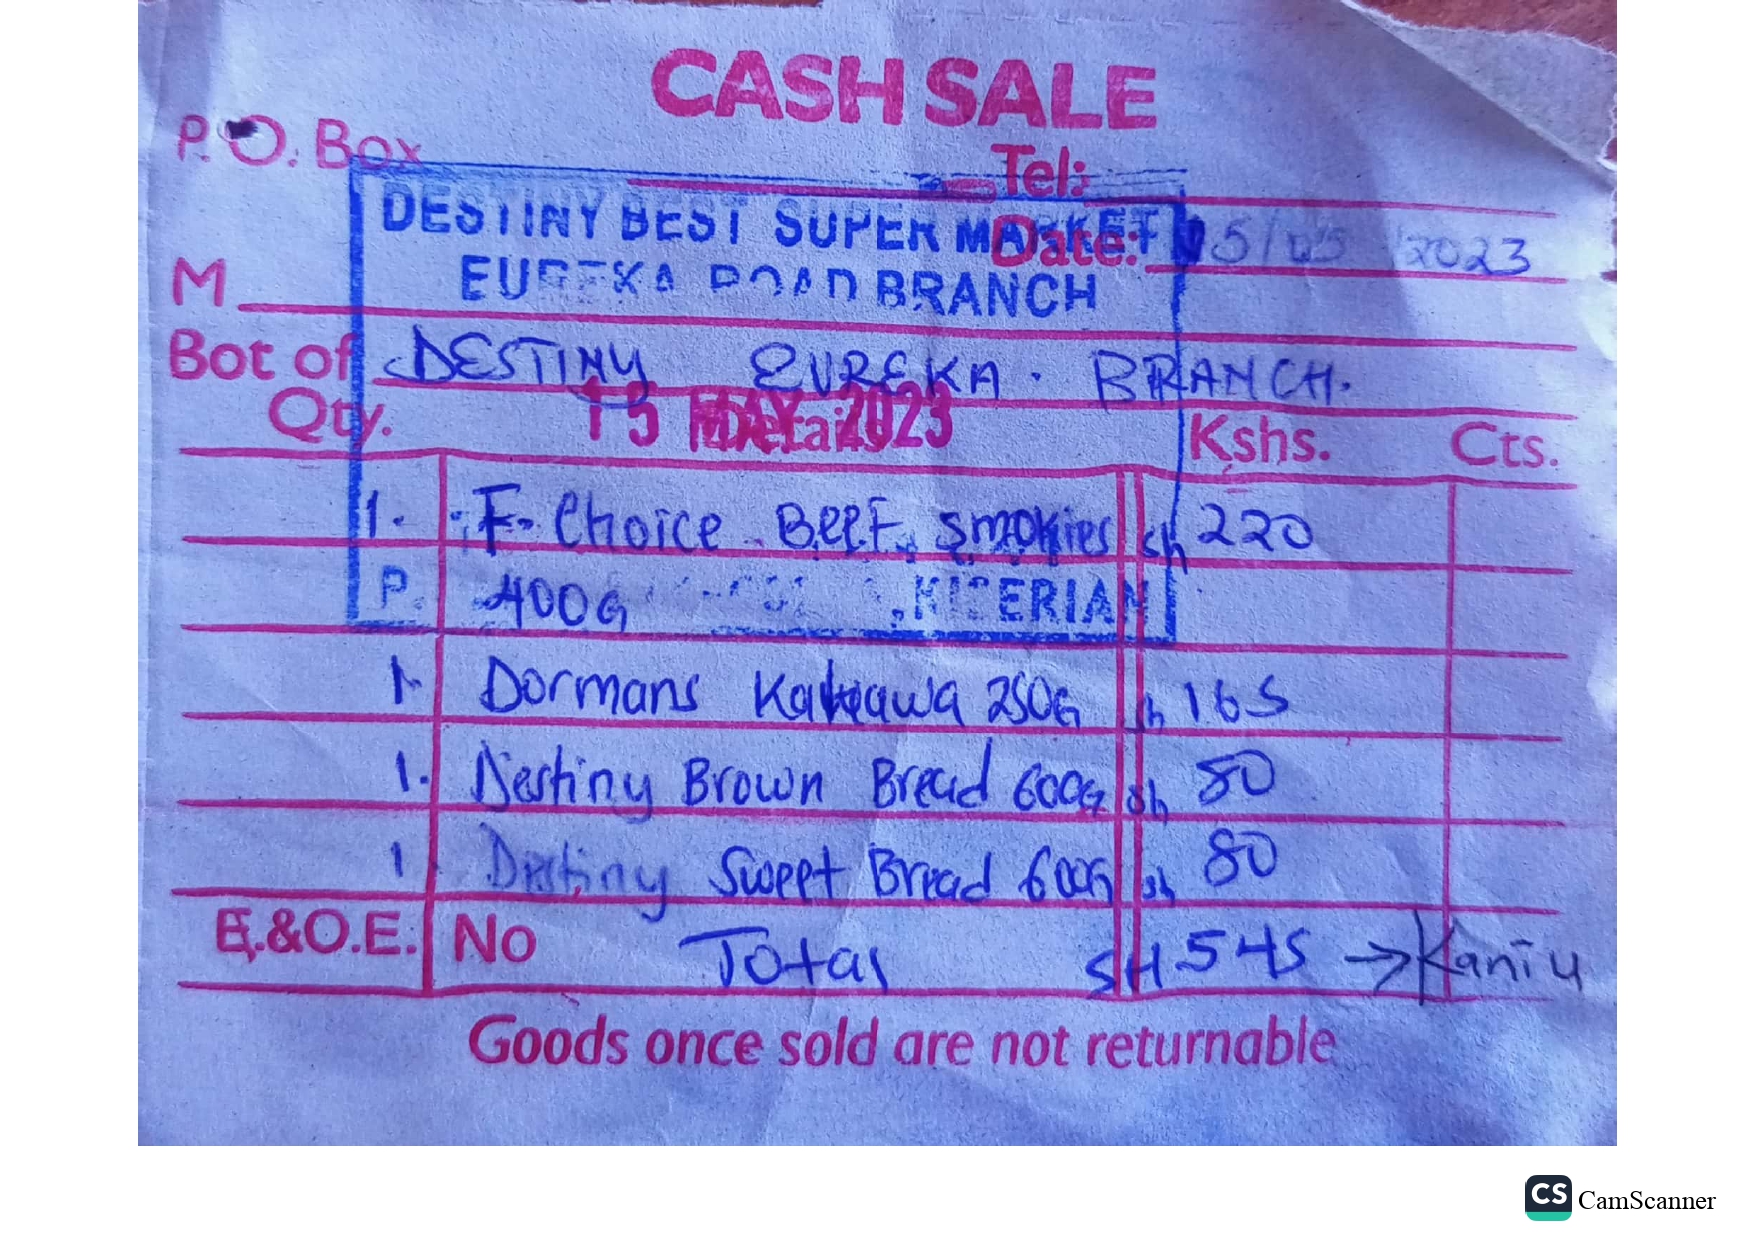 CASH SALE
P.O. Box
Tel:
DESTINY BEST SUPER MARKET
Date: 15/05/2023
EUREKA ROAD BRANCH
M
Bot of DESTINY EUREKA. BRANCH.
15 MAY 2023
Qty. Details Kshs. Cts.
1. F- Choice Beef smokies sh 220
400G
P. KITERIAN
1. Dormans Kahawa 250G sh 165
1. Destiny Brown Bread 600G sh 80
1 Destiny Sweet Bread 600G sh 80
E.&O.E. No Total SH 545 → Kaniu
Goods once sold are not returnable
CS CamScanner